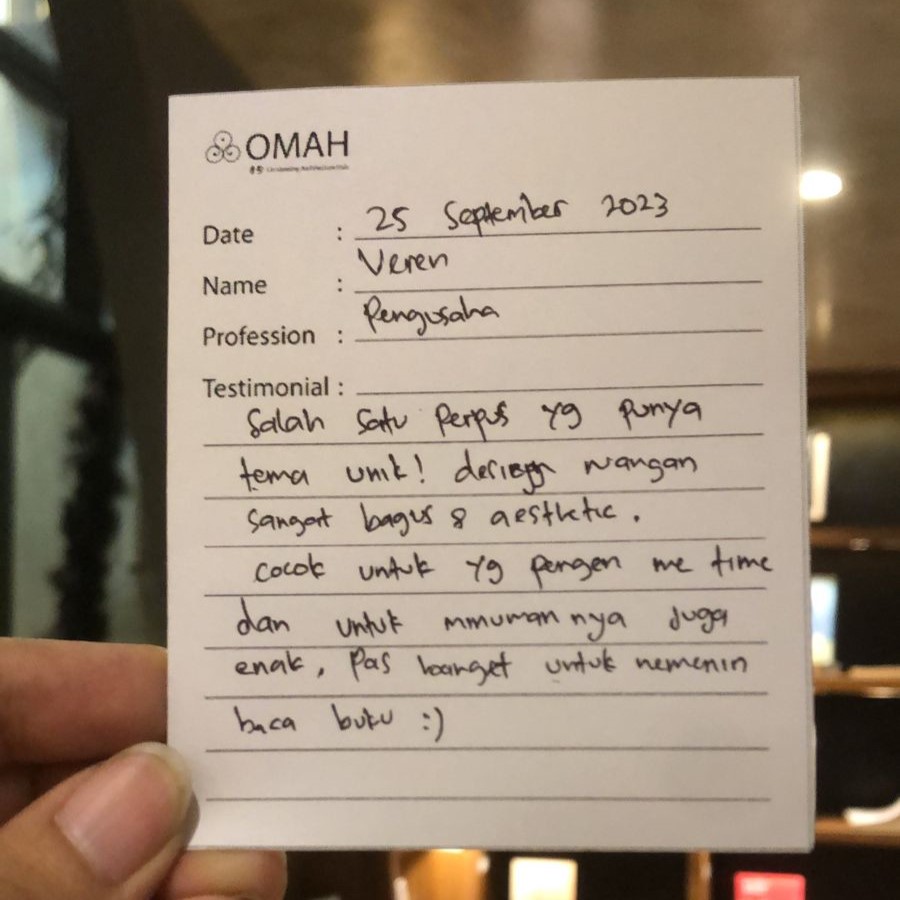 OMAH
Date : 25 September 2023
Name : Veren
Profession : Pengusaha
Testimonial :
Salah satu perpus yg punya
tema unik! design ruangan
sangat bagus & aesthetic.
cocok untuk yg pengen me time
dan untuk minuman nya juga
enak, pas banget untuk nemenin
baca buku :)